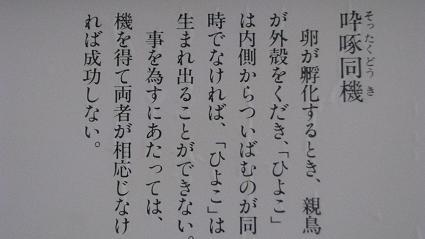 啐啄同機
そったくどうき
卵が孵化するとき、親鳥
が外殻をくだき、「ひよこ」
は内側からついばむのが同
時でなければ、「ひよこ」は
生まれ出ることができない。
事を為すにあたっては、
機を得て両者が相応じなけ
れば成功しない。